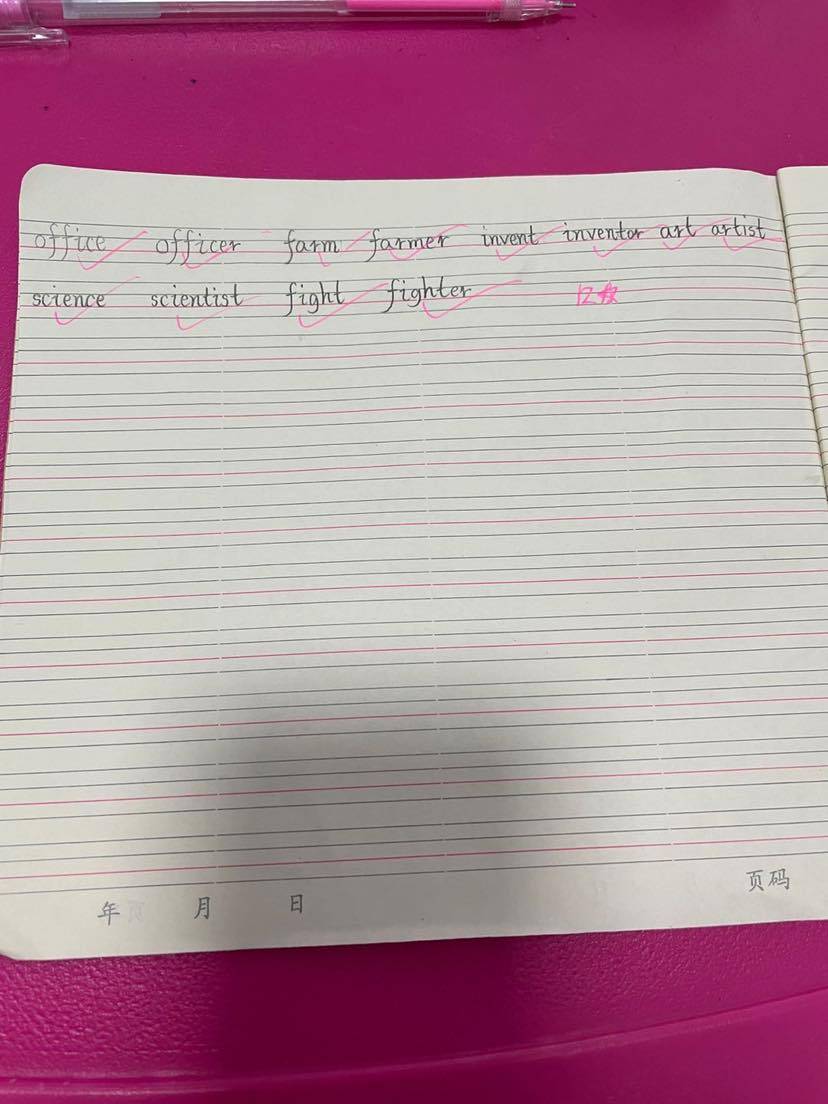 office officer farm farmer invent inventor art artist
science scientist fight fighter 12
年 月 日
页码